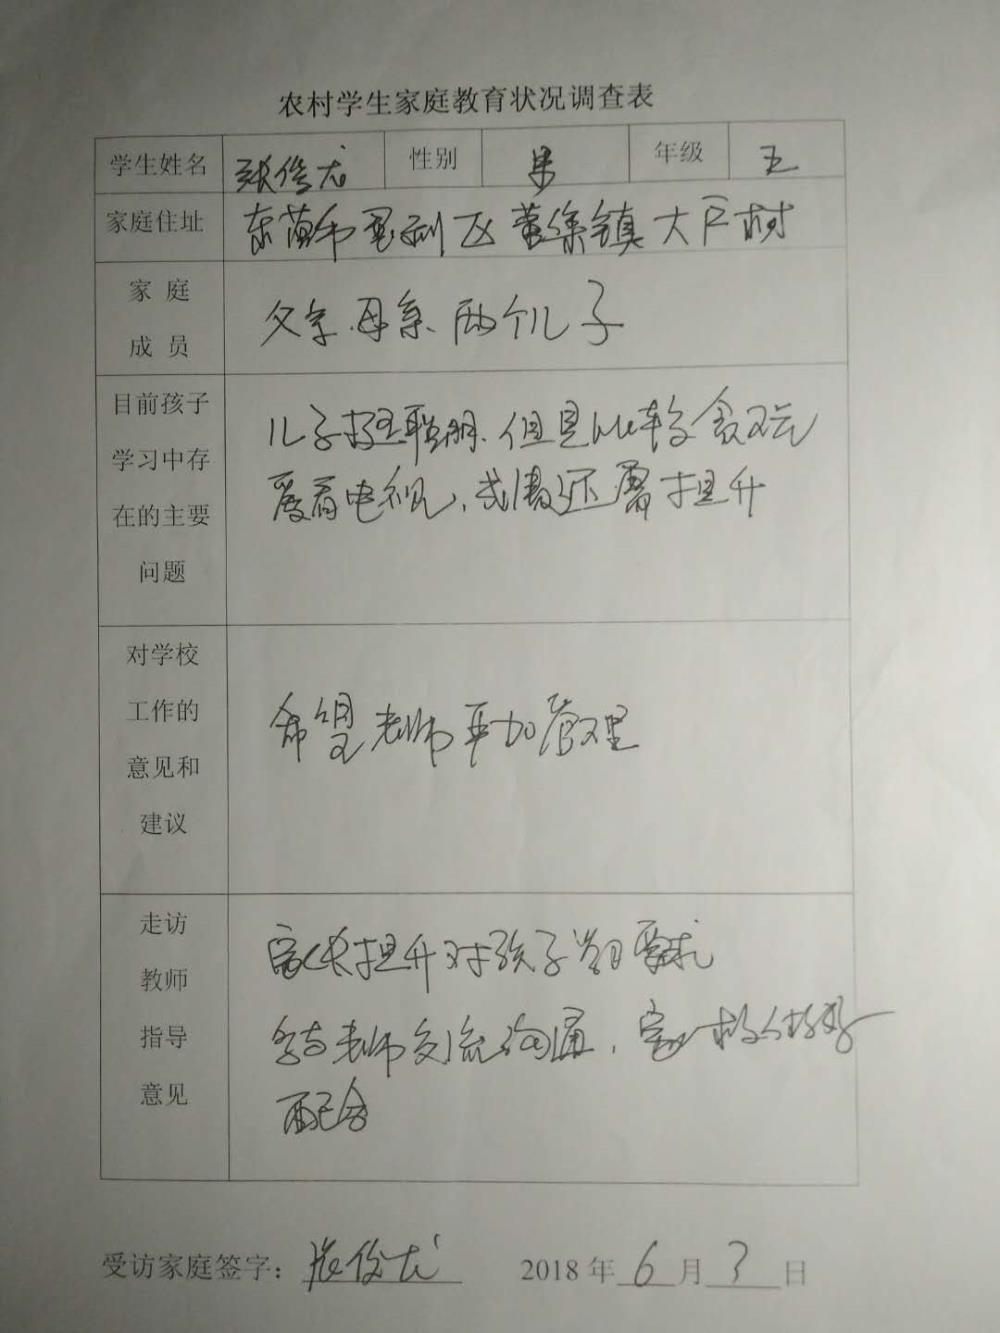 农村学生家庭教育状况调查表
学生姓名 张俊龙 性别 男 年级 五
家庭住址 东营市垦利区董集镇大户村
家庭
成员
父亲.母亲.两个儿子
目前孩子
学习中存
在的主要
问题
儿子挺聪明.但是比较贪玩
爱看电视,成绩还需提升
对学校
工作的
意见和
建议
希望老师严加管理
走访
教师
指导
意见
家长提升对孩子学习要求
多与老师交流沟通,家校做好
配合
受访家庭签字:张俊龙 2018年6月3日